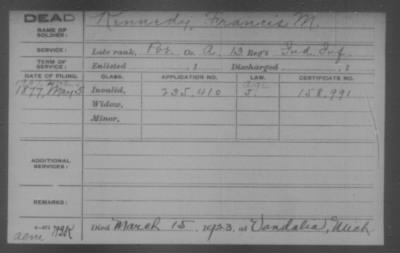 DEAD
NAME OF SOLDIER: Kennedy, Francis M.
SERVICE: Late rank, Por. Co. A, 13 Reg't Ind. Inf.
TERM OF SERVICE: Enlisted , 1 Discharged , 1
DATE OF FILING. CLASS. APPLICATION NO. LAW. CERTIFICATE NO.
1877, May 5 Invalid, 235.410 158.991
Widow,
Minor,
ADDITIONAL SERVICES:
REMARKS:
Died March 15, 1923, at Vandalia, Mich